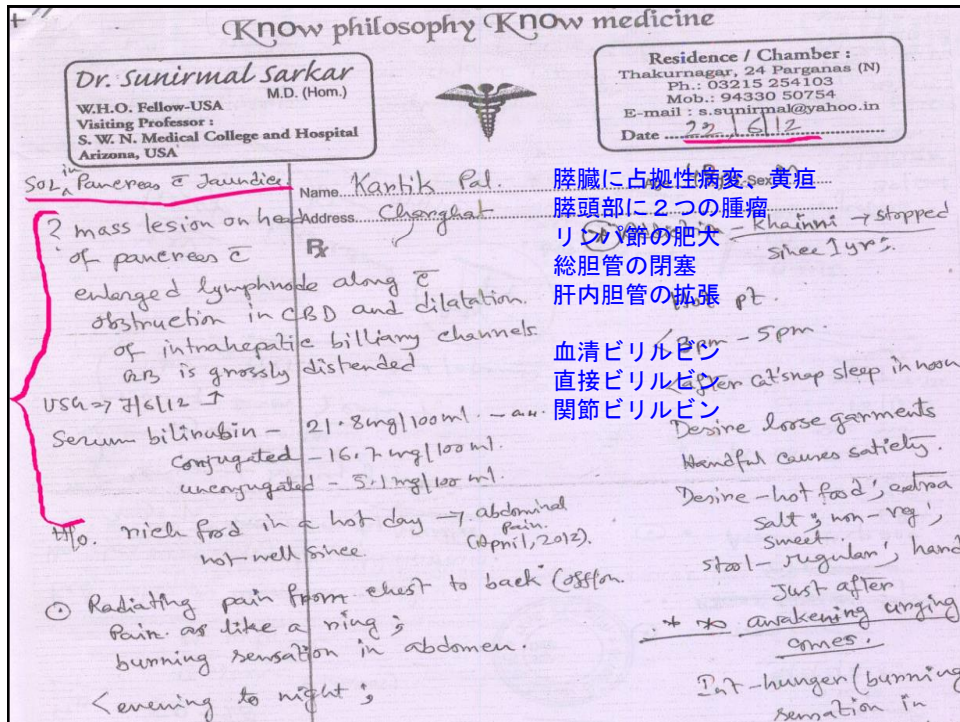 Know philosophy Know medicine
Dr. Sunirmal Sarkar
M.D. (Hom.)
W.H.O. Fellow-USA
Visiting Professor :
S. W. N. Medical College and Hospital
Arizona, USA
Residence / Chamber :
Thakurnagar, 24 Parganas (N)
Ph.: 03215 254103
Mob.: 94330 50754
E-mail : s.sunirmal@yahoo.in
Date 22/6/12
SOL in Pancreas c̄ Jaundice
Name Kartik Pal. Sex
Address
Rx
膵臓に占拠性病変、黄疸
膵頭部に２つの腫瘤
リンパ節の肥大
総胆管の閉塞
肝内胆管の拡張
血清ビリルビン
直接ビリルビン
関節ビリルビン
? mass lesion on head
of pancreas c̄
enlarged lymphnode along c̄
obstruction in CBD and dilatation
of intrahepatic billiary channels.
GB is grossly distended
USG => 7/6/12
Serum bilirubin - 21.8mg/100ml.
conjugated - 16.7 mg/100 ml.
unconjugated - 5.1 mg/100 ml.
H/o. rich food in a hot day → abdominal pain. (April, 2012).
not well since
Radiating pain from chest to back
Pain as like a ring ;
burning sensation in abdomen.
< evening to night ;
= khainni → stopped
since 1 yr.
Hot pt.
< 3pm - 5pm.
< after cat'snap sleep in noon
Desire loose garments
Handful causes satiety.
Desire - hot food ; extra
salt ; non-veg ;
sweet.
stool - regular ; hard
Just after
awakening urging
comes.
Int - hunger (burning
sensation in